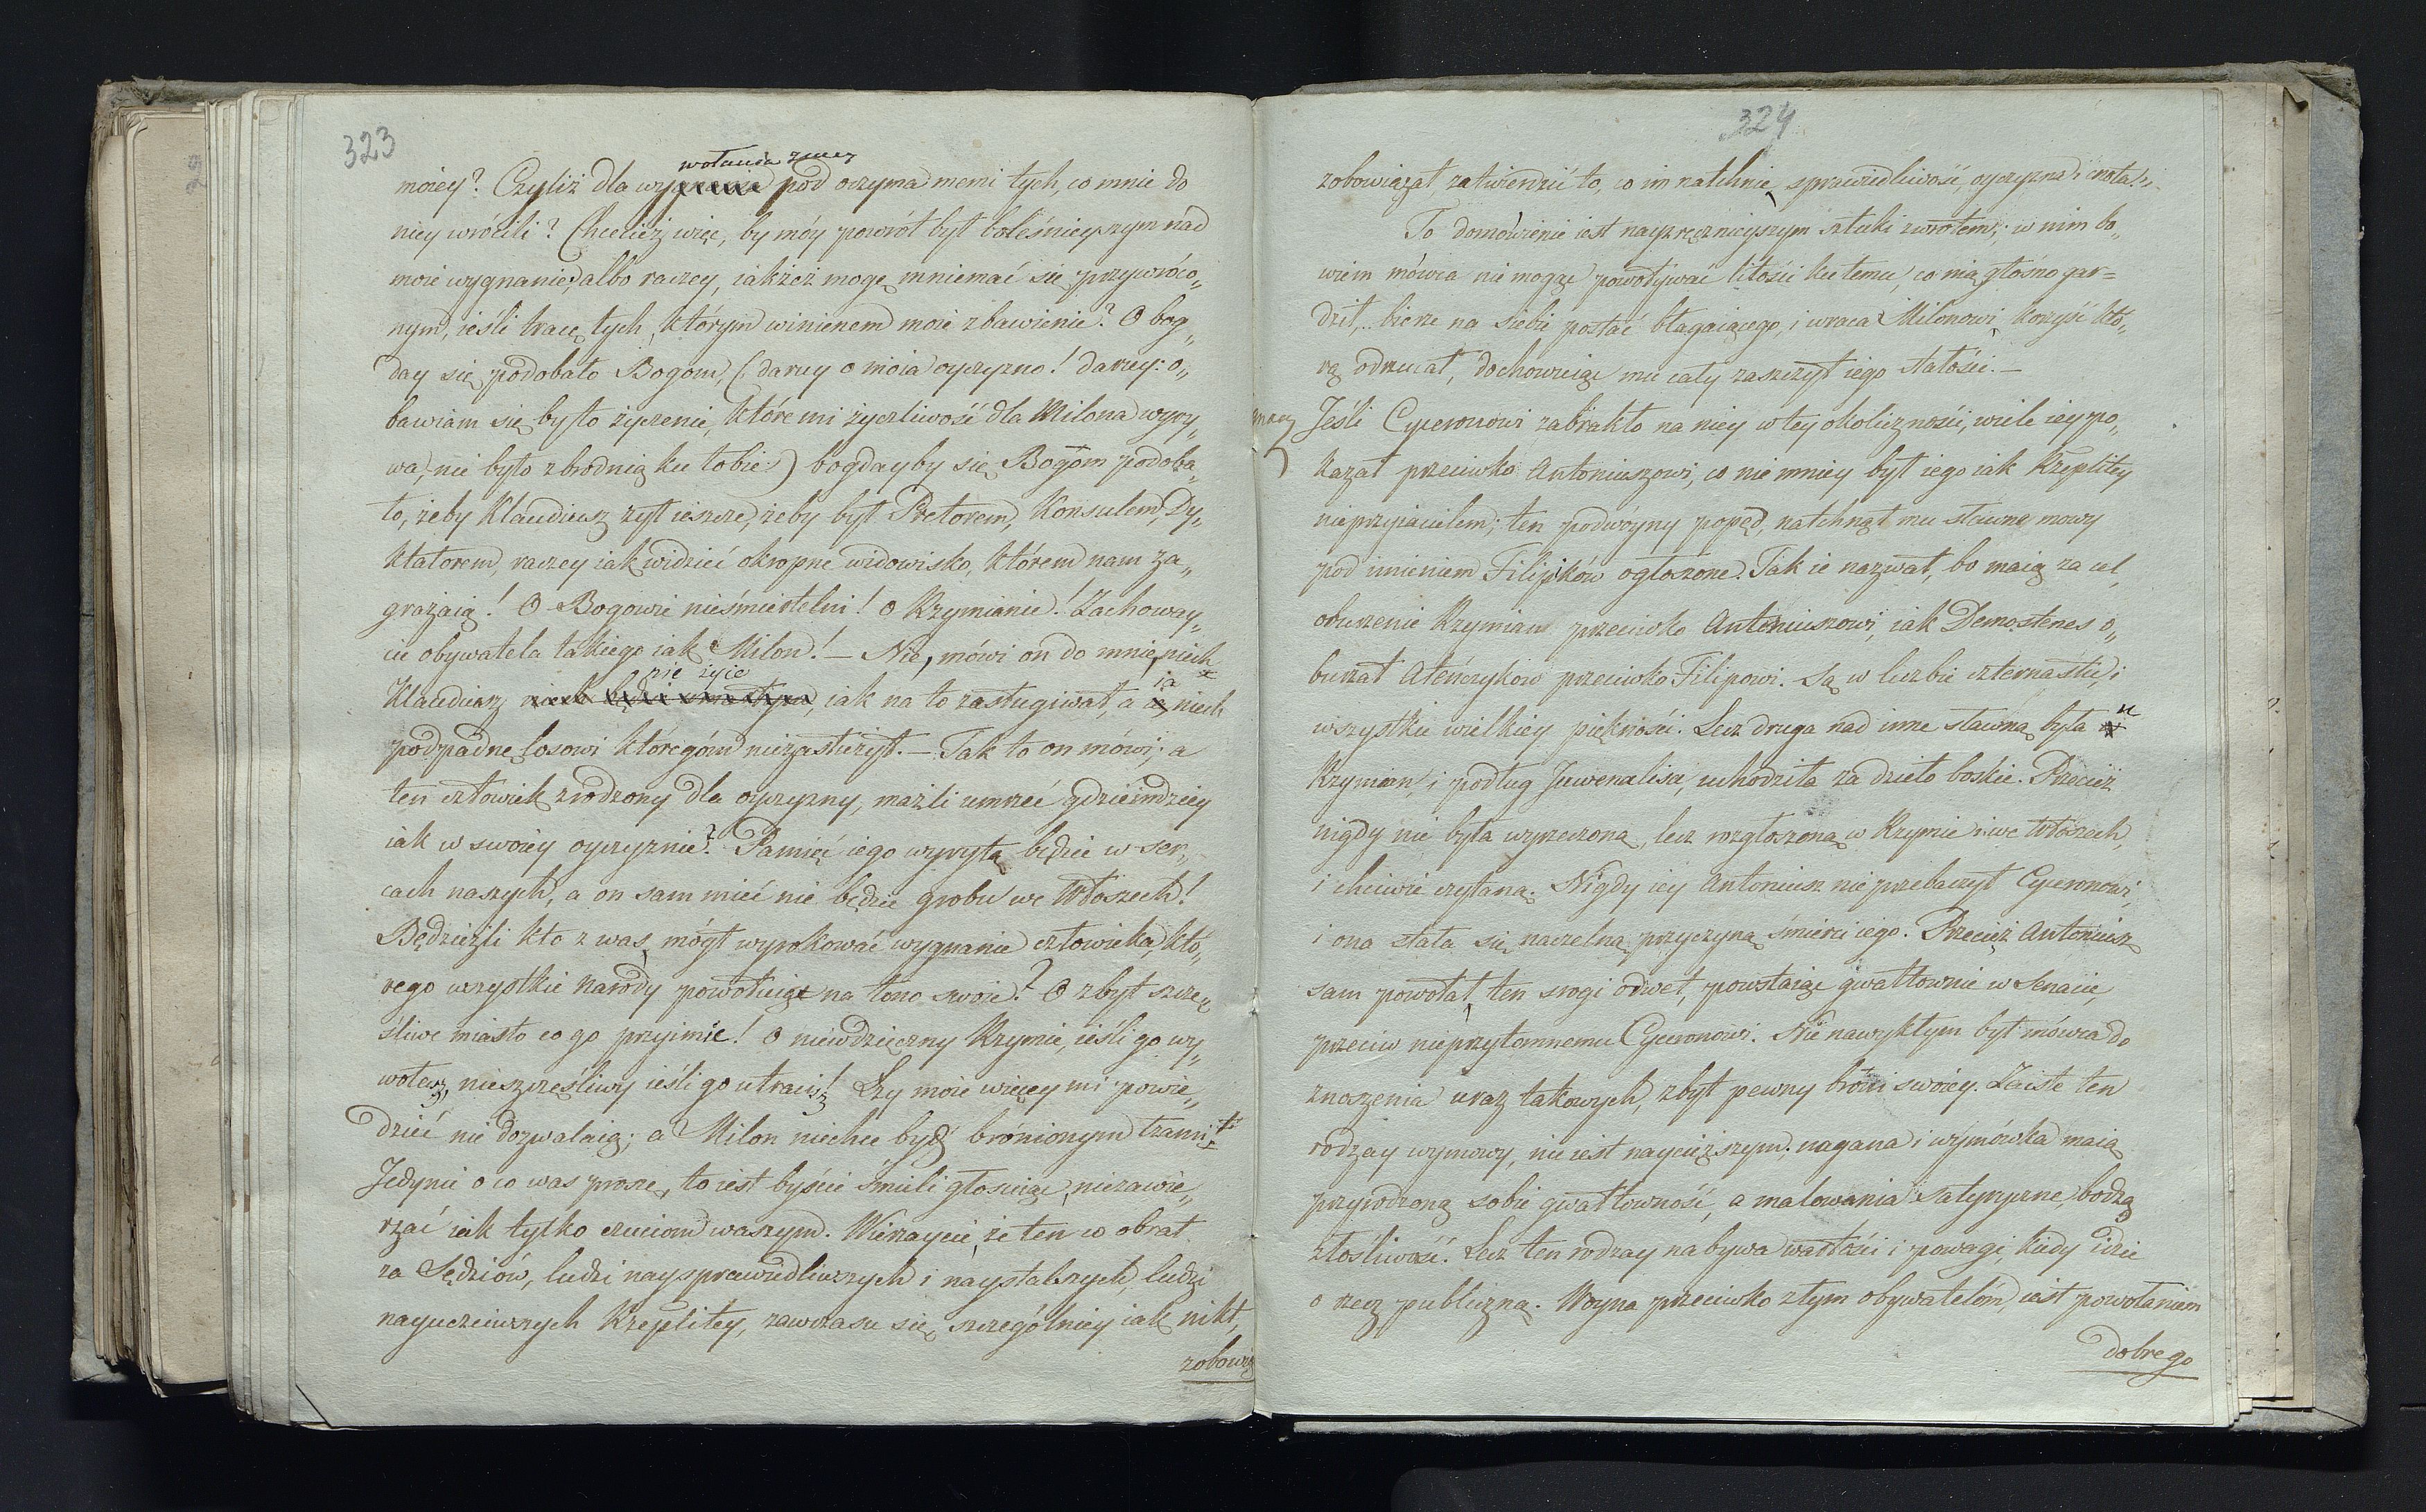 323
wołania zmey
moiey? Czyliż dla wygnania pod oczyma memi tych, co mnie do
niey wrócili? Chcecież więc, by móy powrót był boleśnieyszym nad
moie wygnanie; albo raczey, iakżeż mogę mniemać się przywróco„
nym, ieśli tracę tych, którym winienem moie zbawienie? O bog„
day się podobało Bogom, (: daruy o moia oyczyzno! daruy: o„
bawiam się by to życzenie, które mi życzliwość dla Milona wyry„
wa, nie było zbrodnią ku tobie :) bogdayby się Bogom podoba„
ło, żeby Klaudiusz żył ieszcze, żeby był Pretorem, Konsulem, Dy„
ktatorem, raczey iak widzieć okropne widowisko, którem nam za„
grażaią! O Bogowie nieśmiertelni! o Rzymianie! Zachoway„
cie obywatela takiego iak Milon! — Nie, mówi on do mnie, niech
nie żyie ia
Klaudiusz niech będzie, iak na to zasługiwał, a niech
podpadnę losowi któregóm niezasłużył. — Tak to on mówi; a
ten człowiek zrodzony dla oyczyzny, maźli umrzeć gdzieindziey
iak w swoiey oyczyznie? Pamięć iego wyryta będzie w ser„
cach naszych, a on sam mieć nie będzie grobu we Włoszech!
Będzieżli kto z was, mógł wyrokować wygnanie człowieka, któ„
rego wszystkie narody powołuią na łono swoie? O zbyt szczę„
śliwe miasto co go przyimie! o niewdzięczny Rzymie, ieśli go wy„
wołasz, nieszczęśliwy ieśli go utracisz! Łzy moie więcey mi powie„
dzieć nie dozwalaią; a Milon niechce być brónionym łzami
Jedynie o co was proszę, to iest byście śmieli głosuiąc, niezawie„
rzać iak tylko czuciom waszym. Wierzaycie, że ten co obrał
za Sędziów, ludzi naysprawiedliwszych i naystalszych, ludzi
nayuczciwszych Rzeplitey, zawczasu się szczególniey iak nikt,
zobowią
324
zobowiązał zatwierdzić to, co im natchnie, sprawiedliwość, oyczyzna i cnota!„
To domówienie iest nayzręcznieyszym sztuki zwrotem; w nim bo„
wiem mówca nie mogąc powoływać litości ku temu, co nią głośno gar=
dził, bierze na siebie postać błagaiącego, i wraca Milonowi, korzyść któ„
rą odrzucał, dochowuiąc mu cały zaszczyt iego stałości. —
Jeśli Cyceronowi zabrakło na niey w tey okoliczności, wiele iey po„
kazał przeciwko Antoniuszowi, co nie mniey był iego iak Rzeplitey
nieprzyiacielem; ten podwóyny popęd, natchnął mu sławne mowy
pod imieniem Filipików ogłoszone. Tak ie nazwał, bo maią za cel,
oburzenie Rzymian przeciwko Antoniuszowi, iak Demostenes o„
burzał Ateńczyków przeciwko Filipowi. Są w liczbie czternastu, i
wszystkie wielkiey piękności. Lecz druga nad inne sławną była u
Rzymian, i podług Juwenalisa, uchodziła za dzieło boskie. Przecież
nigdy nie była wyrzeczoną, lecz rozgłoszoną w Rzymie i we Włoszech,
i chciwie czytaną. Nigdy iey Antoniusz nie przebaczył Cyceronowi,
i ona stała się naczelną przyczyną śmierci iego. Przecież Antoniusz
sam powołał ten srogi odwet, powstaiąc gwałtownie w Senacie,
przeciw nieprzytomnemu Cyceronowi. Nie nawykłym był mówca do
znoszenia uraz takowych, zbyt pewny bróni swoiey. Zaiste ten
rodzay wymowy, nie iest naycięższym; nagana i wymówka maią
przyrodzoną sobie gwałtowność, a malowania satyryczne, bodzą
złośliwość. Lecz ten rodzay nabywa wartości i powagi, kiedy idzie
o rzecz publiczną. Woyna przeciwko złym obywatelóm, iest powołaniem
dobrego